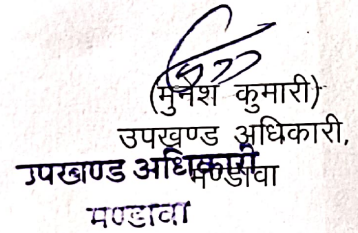 (मुनेश कुमारी)
उपखण्ड अधिकारी,
मण्डावा
उपखण्ड अधिकारी
मण्डावा